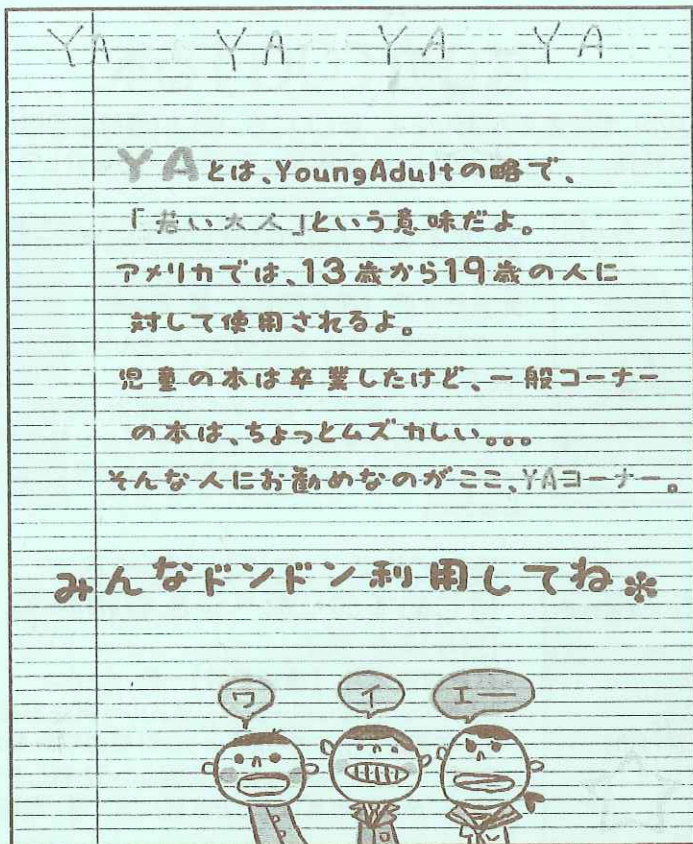 YA YA YA YA
YAとは、YoungAdultの略で、
「若い大人」という意味だよ。
アメリカでは、13歳から19歳の人に
対して使用されるよ。
児童の本は卒業したけど、一般コーナー
の本は、ちょっとムズカしい。。。
そんな人にお勧めなのがココ、YAコーナー。
みんなドンドン利用してね*
ワ イ エー